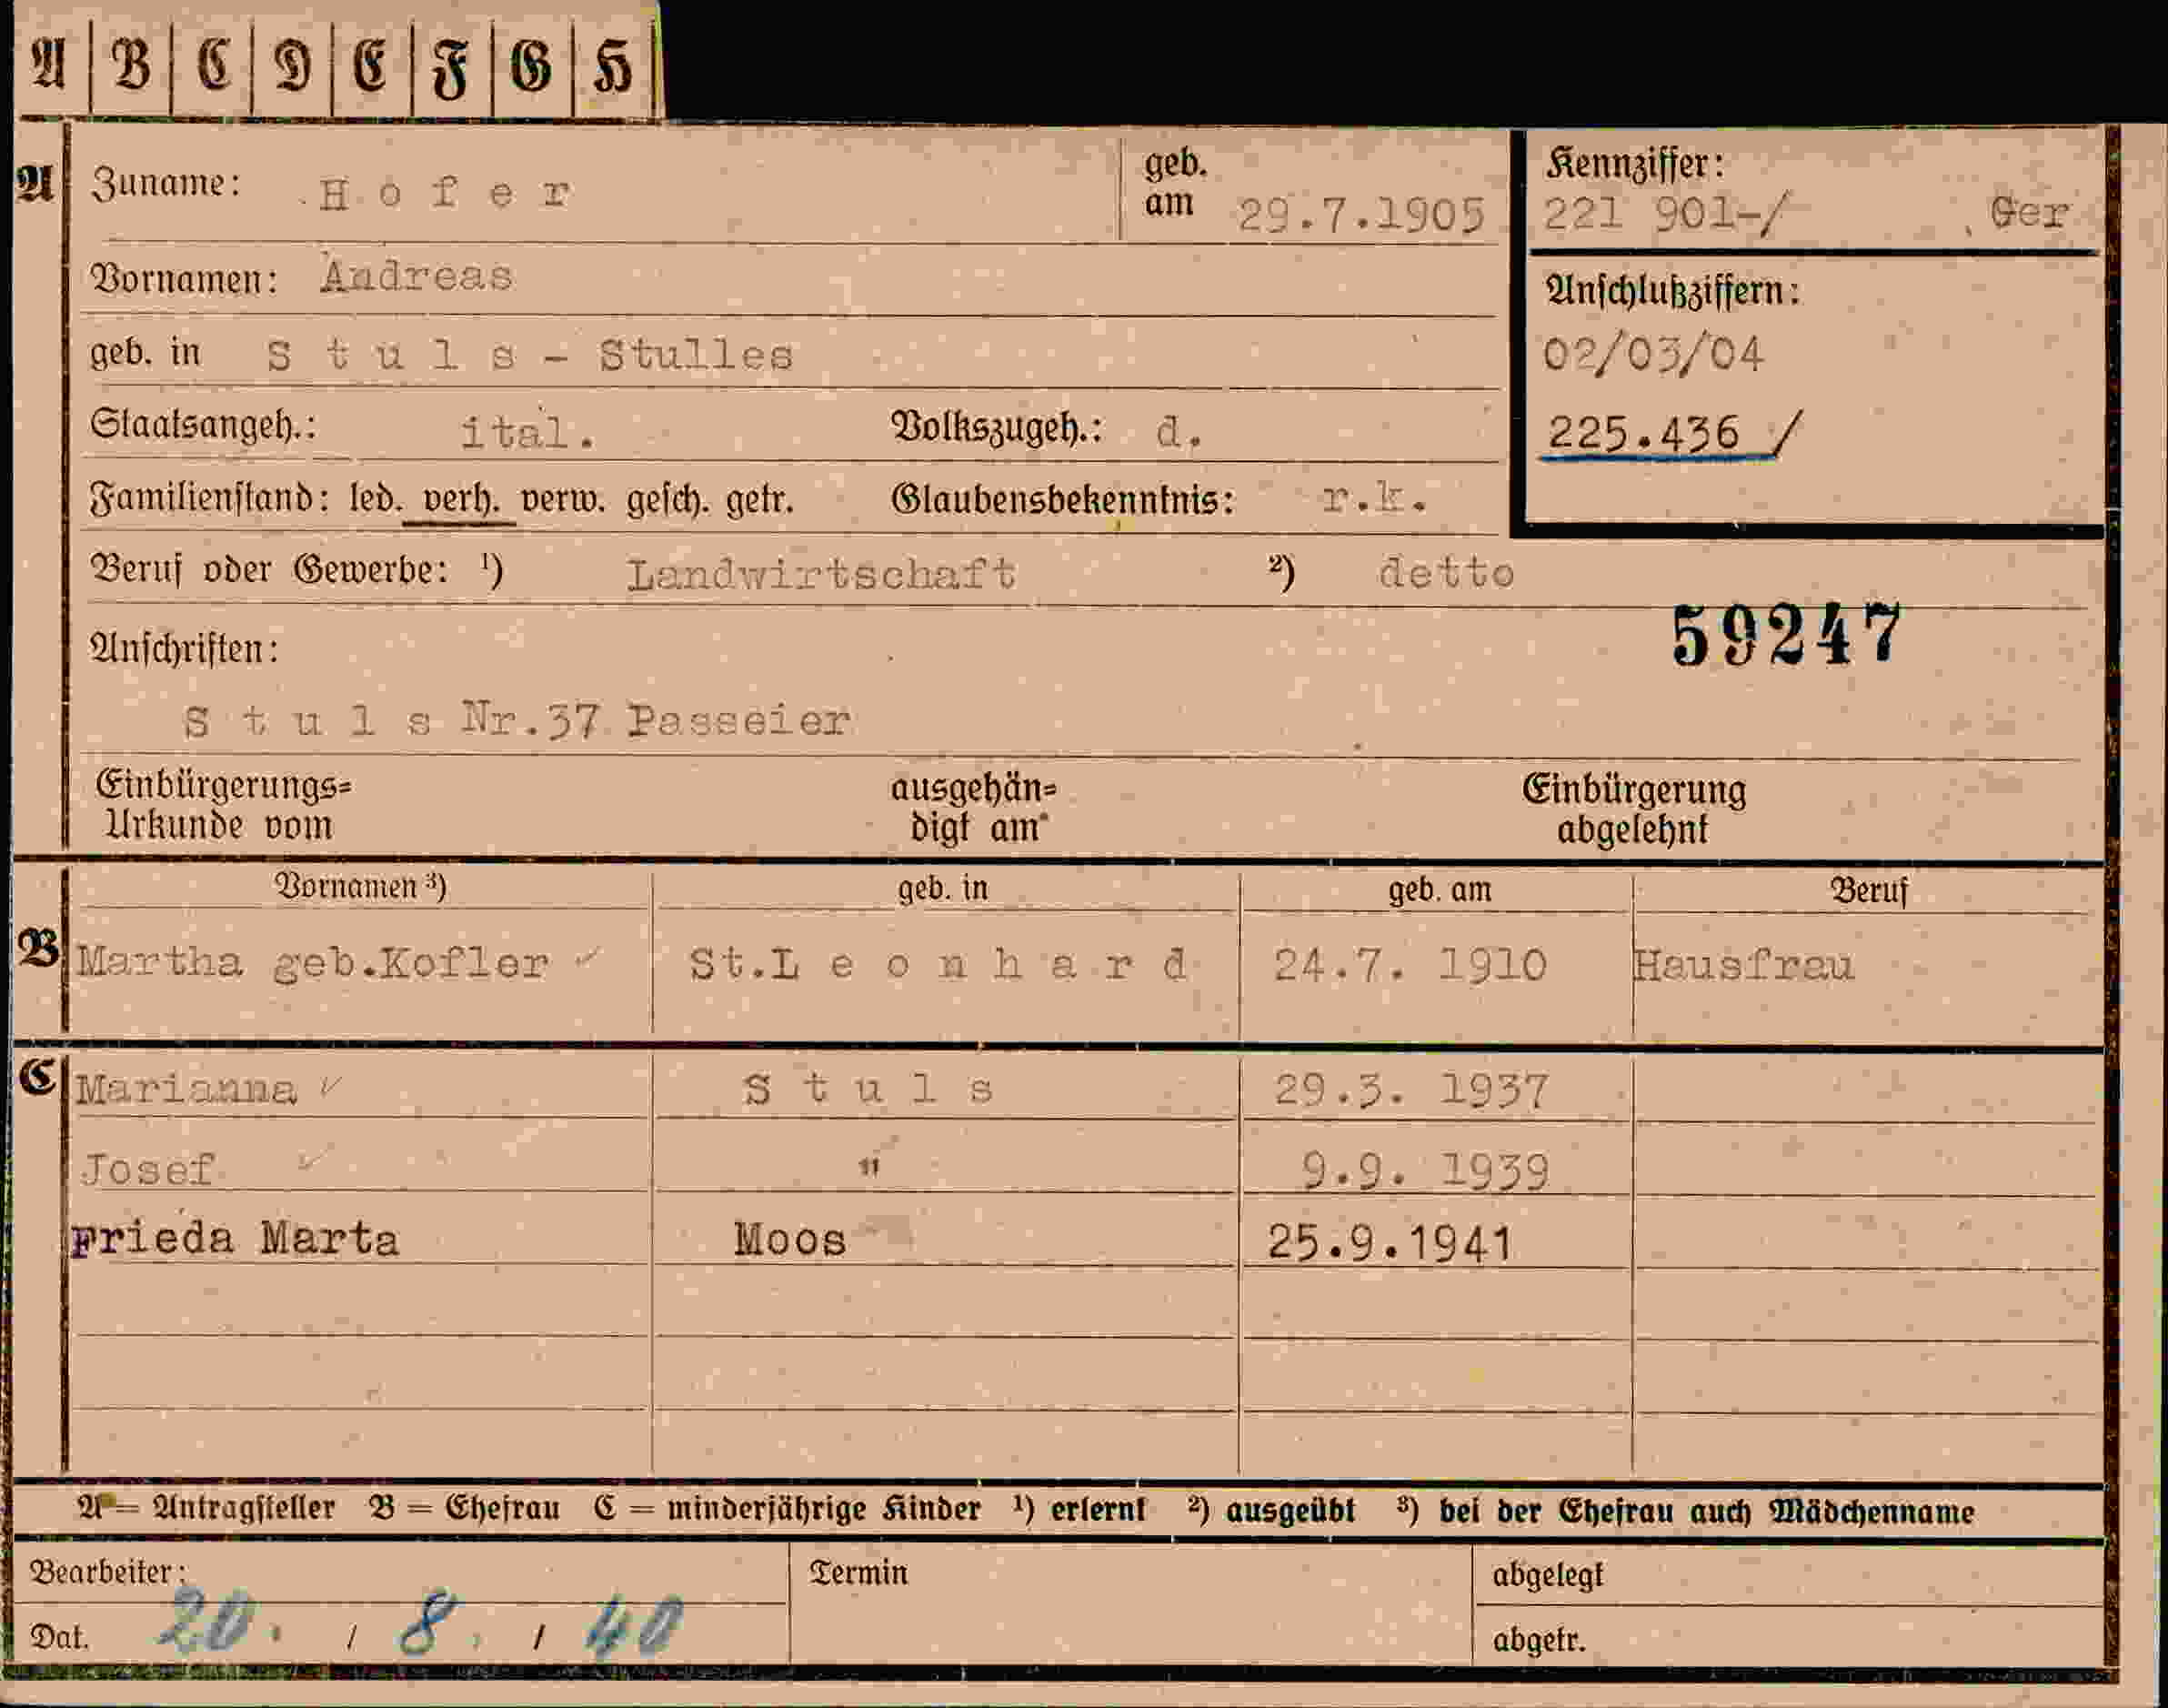 A | B | C | D | E | F | G | H
A Zuname: Hofer geb. am 29.7.1905 Kennziffer:
221 901-/ Ger
Vornamen: Andreas
Anschlußziffern:
geb. in Stuls - Stulles 02/03/04
Staatsangeh.: ital. Volkszugeh.: d. 225.436 /
Familienstand: led. verh. verw. gesch. getr. Glaubensbekenntnis: r.k.
Beruf oder Gewerbe: ¹) Landwirtschaft ²) detto
59247
Anschriften:
Stuls Nr.37 Passeier
Einbürgerungs= ausgehän= Einbürgerung
Urkunde vom digt am abgelehnt
Vornamen ³) geb. in geb. am Beruf
B Martha geb.Kofler ✓ St.Leonhard 24.7. 1910 Hausfrau
C Marianna ✓ Stuls 29.3. 1937
Josef ✓ " 9.9. 1939
Frieda Marta Moos 25.9.1941
A = Antragsteller B = Ehefrau C = minderjährige Kinder ¹) erlernt ²) ausgeübt ³) bei der Ehefrau auch Mädchenname
Bearbeiter: Termin abgelegt
Dat. 20. / 8. / 40 abgetr.